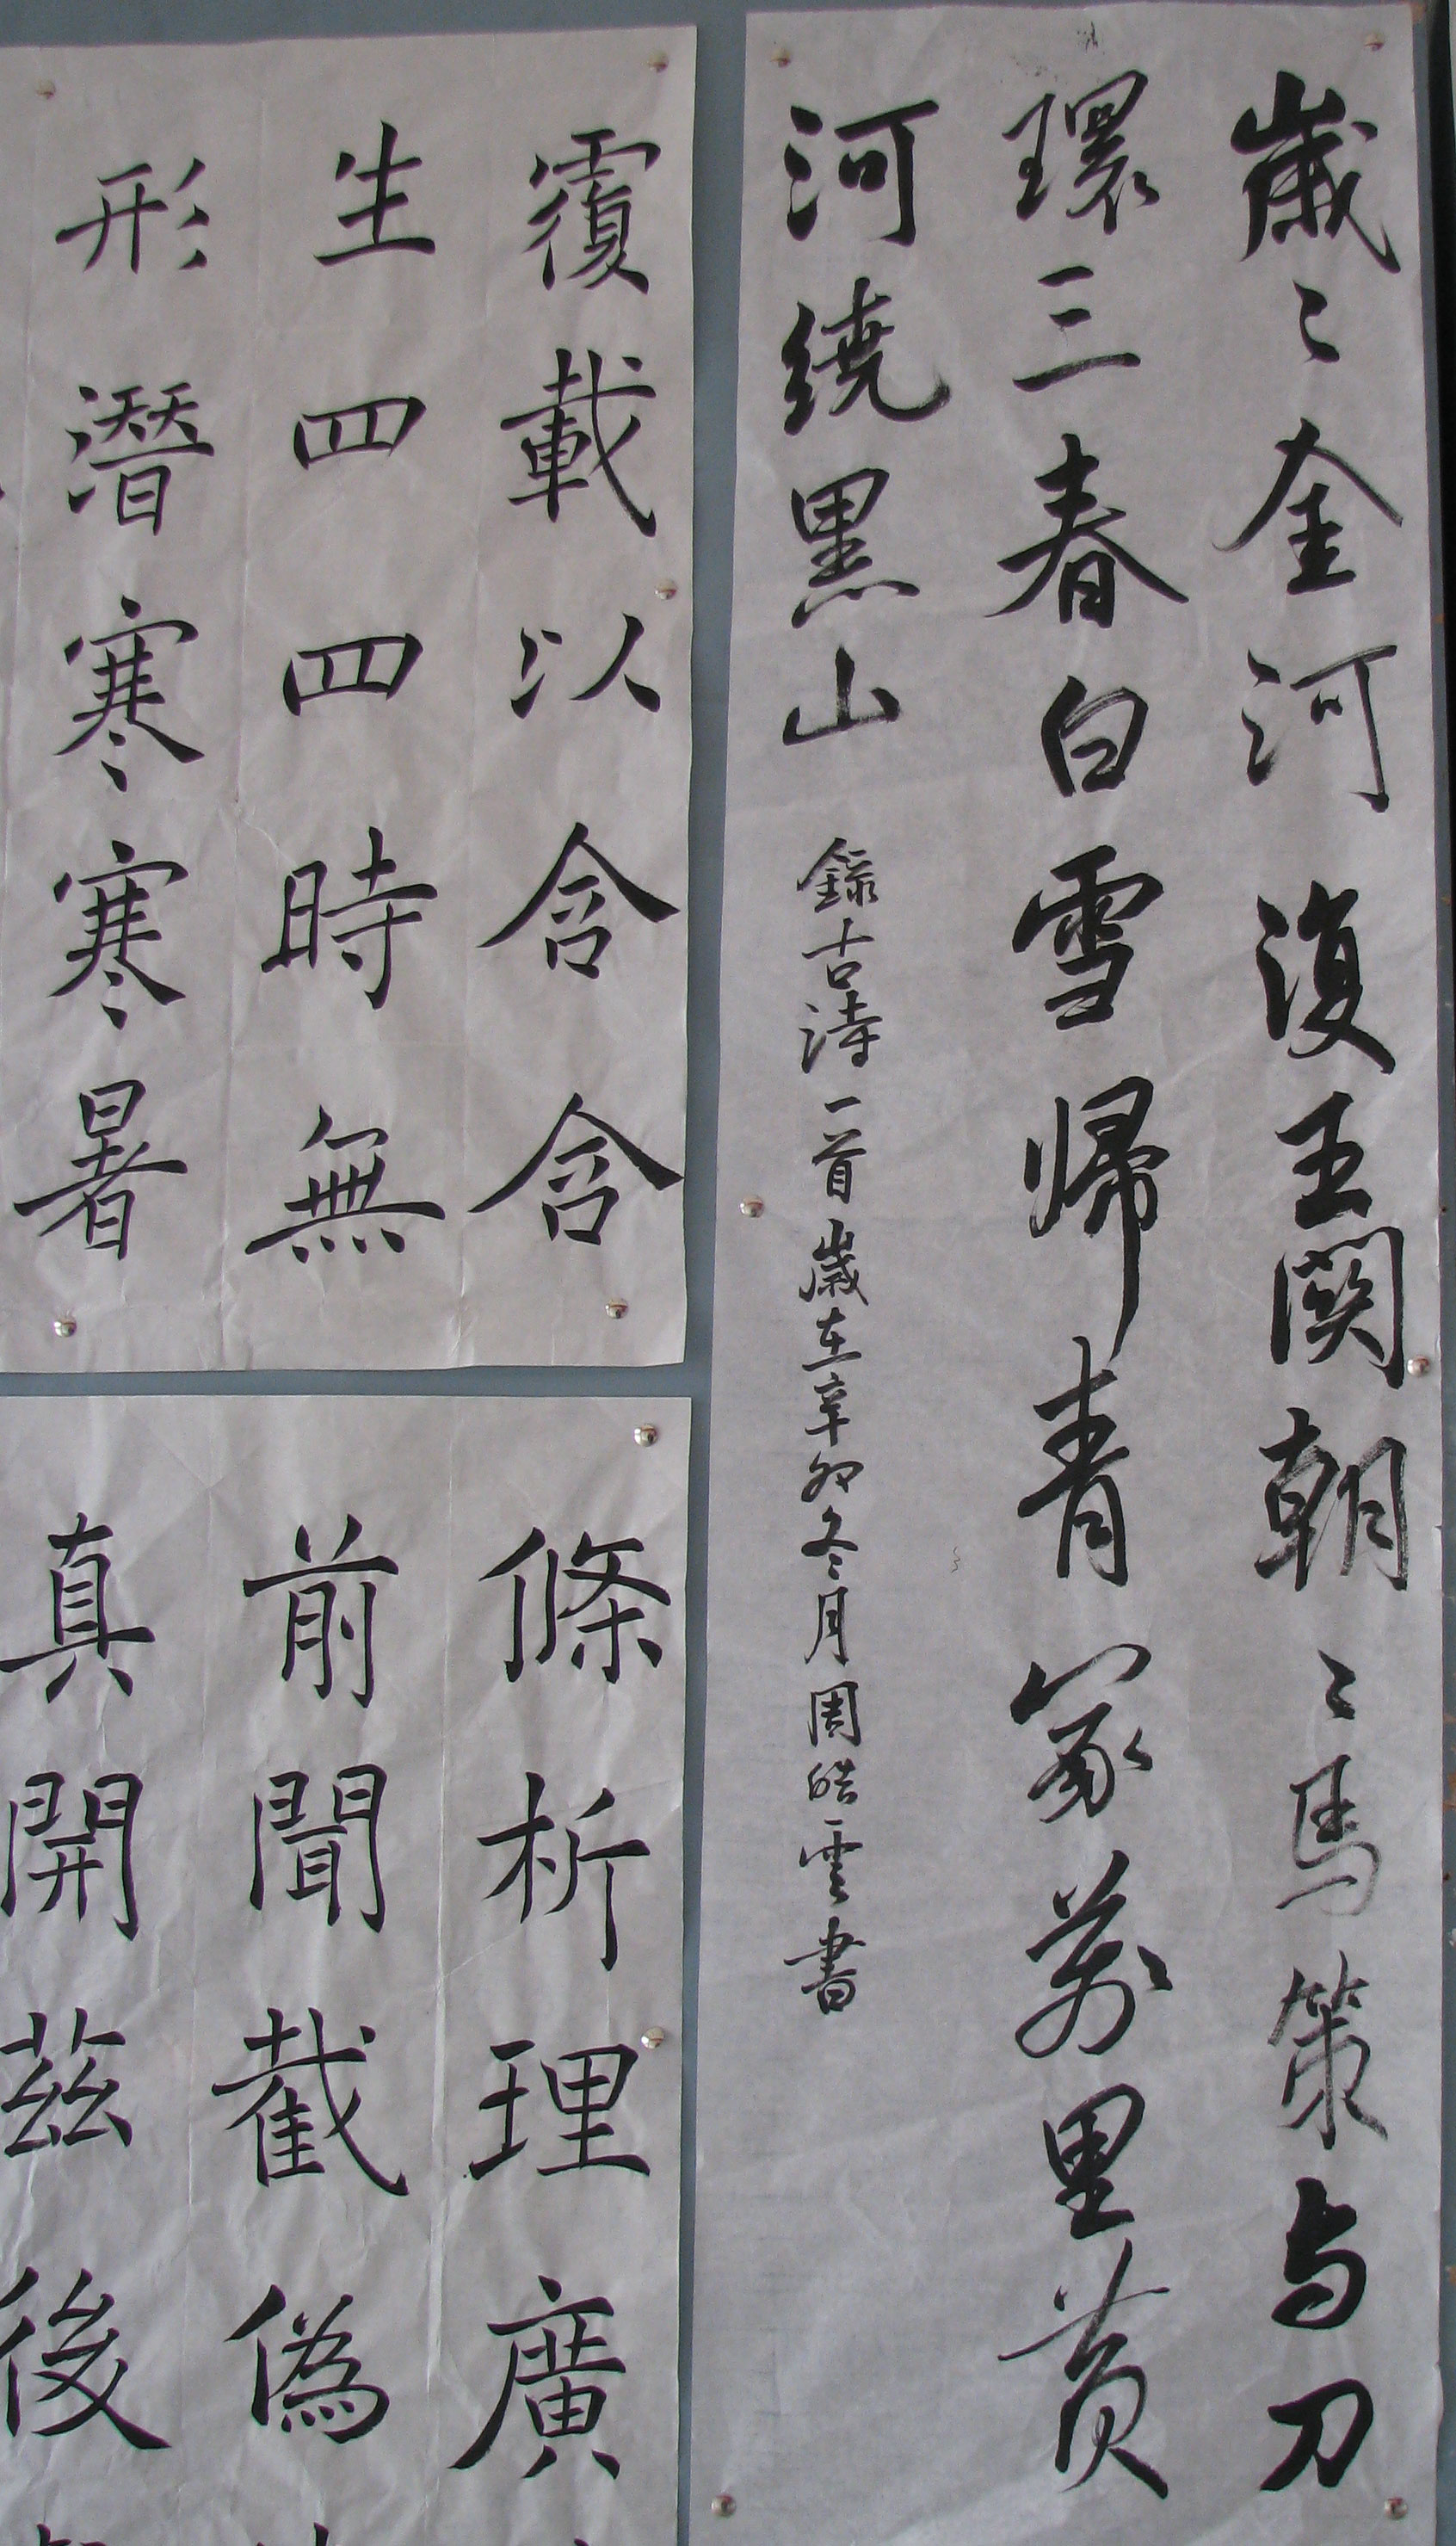 歲〻金河復玉關朝〻馬策与刀
環三春白雪歸青冢萬里黃
河繞黑山
錄古詩一首歲在辛卯冬月周皓雲書
覆載以含含
生四四時無
形潛寒寒暑
條析理廣
前聞截偽
真開茲後